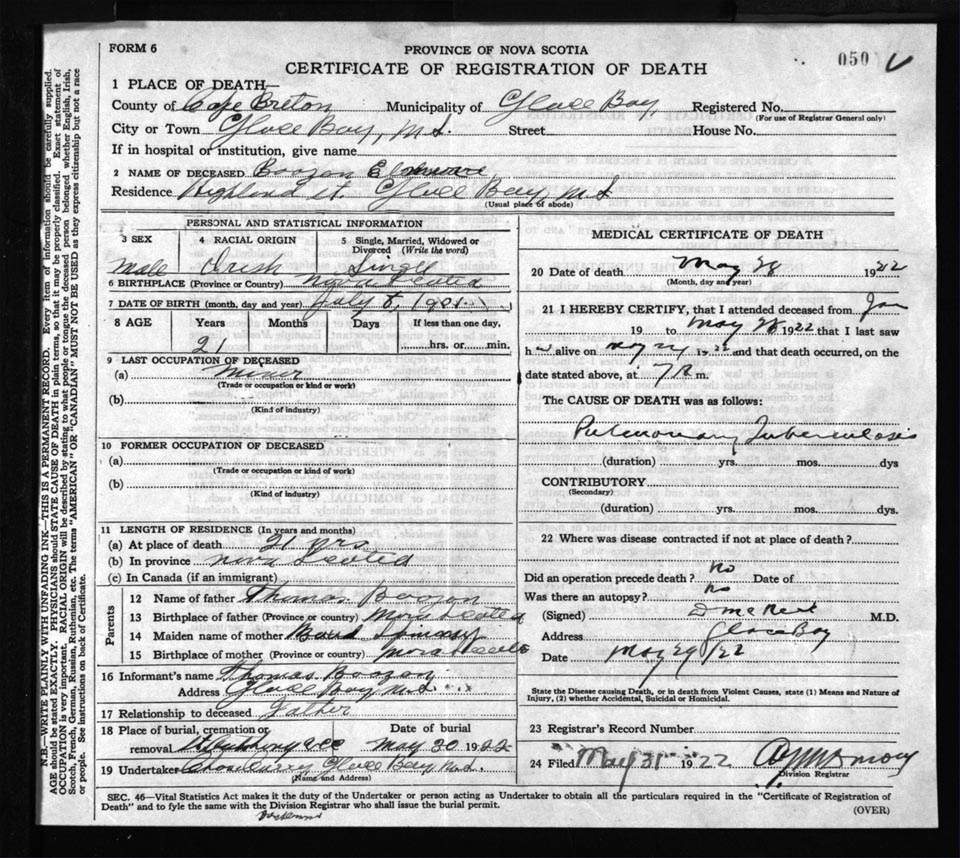 FORM 6
PROVINCE OF NOVA SCOTIA
050
CERTIFICATE OF REGISTRATION OF DEATH
1 PLACE OF DEATH—
County of Cape Breton Municipality of Glace Bay Registered No.
(For use of Registrar General only)
City or Town Glace Bay, N.S. Street House No.
If in hospital or institution, give name
2 NAME OF DECEASED Boozan
Residence Highland St. Glace Bay, N.S
(Usual place of abode)
PERSONAL AND STATISTICAL INFORMATION
3 SEX 4 RACIAL ORIGIN 5 Single, Married, Widowed or Divorced (Write the word)
Male Irish Single
6 BIRTHPLACE (Province or Country) Nova Scotia
7 DATE OF BIRTH (month, day and year) July 8, 1901
8 AGE Years Months Days If less than one day,
21 hrs. or min.
9 LAST OCCUPATION OF DECEASED
(a) Miner
(Trade or occupation or kind or work)
(b)
(Kind of industry)
10 FORMER OCCUPATION OF DECEASED
(a)
(Trade or occupation or kind or work)
(b)
(Kind of industry)
11 LENGTH OF RESIDENCE (In years and months)
(a) At place of death 21 yrs
(b) In province Nova Scotia
(c) In Canada (if an immigrant)
Parents
12 Name of father Thomas Boozan
13 Birthplace of father (Province or country) Nova Scotia
14 Maiden name of mother
15 Birthplace of mother (Province or country) Nova Scotia
16 Informant's name Thomas Boozan
Address Glace Bay N.S.
17 Relationship to deceased Father
18 Place of burial, cremation or removal Date of burial
May 30 1922
19 Undertaker Chas Curry Glace Bay N.S.
(Name and Address)
MEDICAL CERTIFICATE OF DEATH
20 Date of death May 28 1922
(Month, day and year)
21 I HEREBY CERTIFY, that I attended deceased from Jan
19 to May 28 1922 that I last saw
h alive on May 19 and that death occurred, on the
date stated above, at 7 m.
The CAUSE OF DEATH was as follows:
Pulmonary Tuberculosis
(duration) yrs. mos. dys
CONTRIBUTORY
(Secondary)
(duration) yrs. mos. dys.
22 Where was disease contracted if not at place of death?
Did an operation precede death? No Date of
Was there an autopsy? No
(Signed) M.D.
Address Glace Bay
Date May 29/22
State the Disease causing Death, or in death from Violent Causes, state (1) Means and Nature of Injury, (2) whether Accidental, Suicidal or Homicidal.
23 Registrar's Record Number
24 Filed May 31 1922
Division Registrar
SEC. 46—Vital Statistics Act makes it the duty of the Undertaker or person acting as Undertaker to obtain all the particulars required in the "Certificate of Registration of
Death" and to fyle the same with the Division Registrar who shall issue the burial permit.
(OVER)
N.B.—WRITE PLAINLY WITH UNFADING INK—THIS IS A PERMANENT RECORD. Every item of information should be carefully supplied.
AGE should be stated EXACTLY. PHYSICIANS should STATE CAUSE OF DEATH in plain terms, so that it may be properly classified. Exact statement of
OCCUPATION is very important. RACIAL ORIGIN will be described by stating to what people or tongue the deceased person belonged whether English, Irish,
Scotch, French, German, Russian, Ruthenian, etc. The terms "AMERICAN" OR "CANADIAN" MUST NOT BE USED as they express citizenship but not a race
or people. See instructions on back of Certificate.